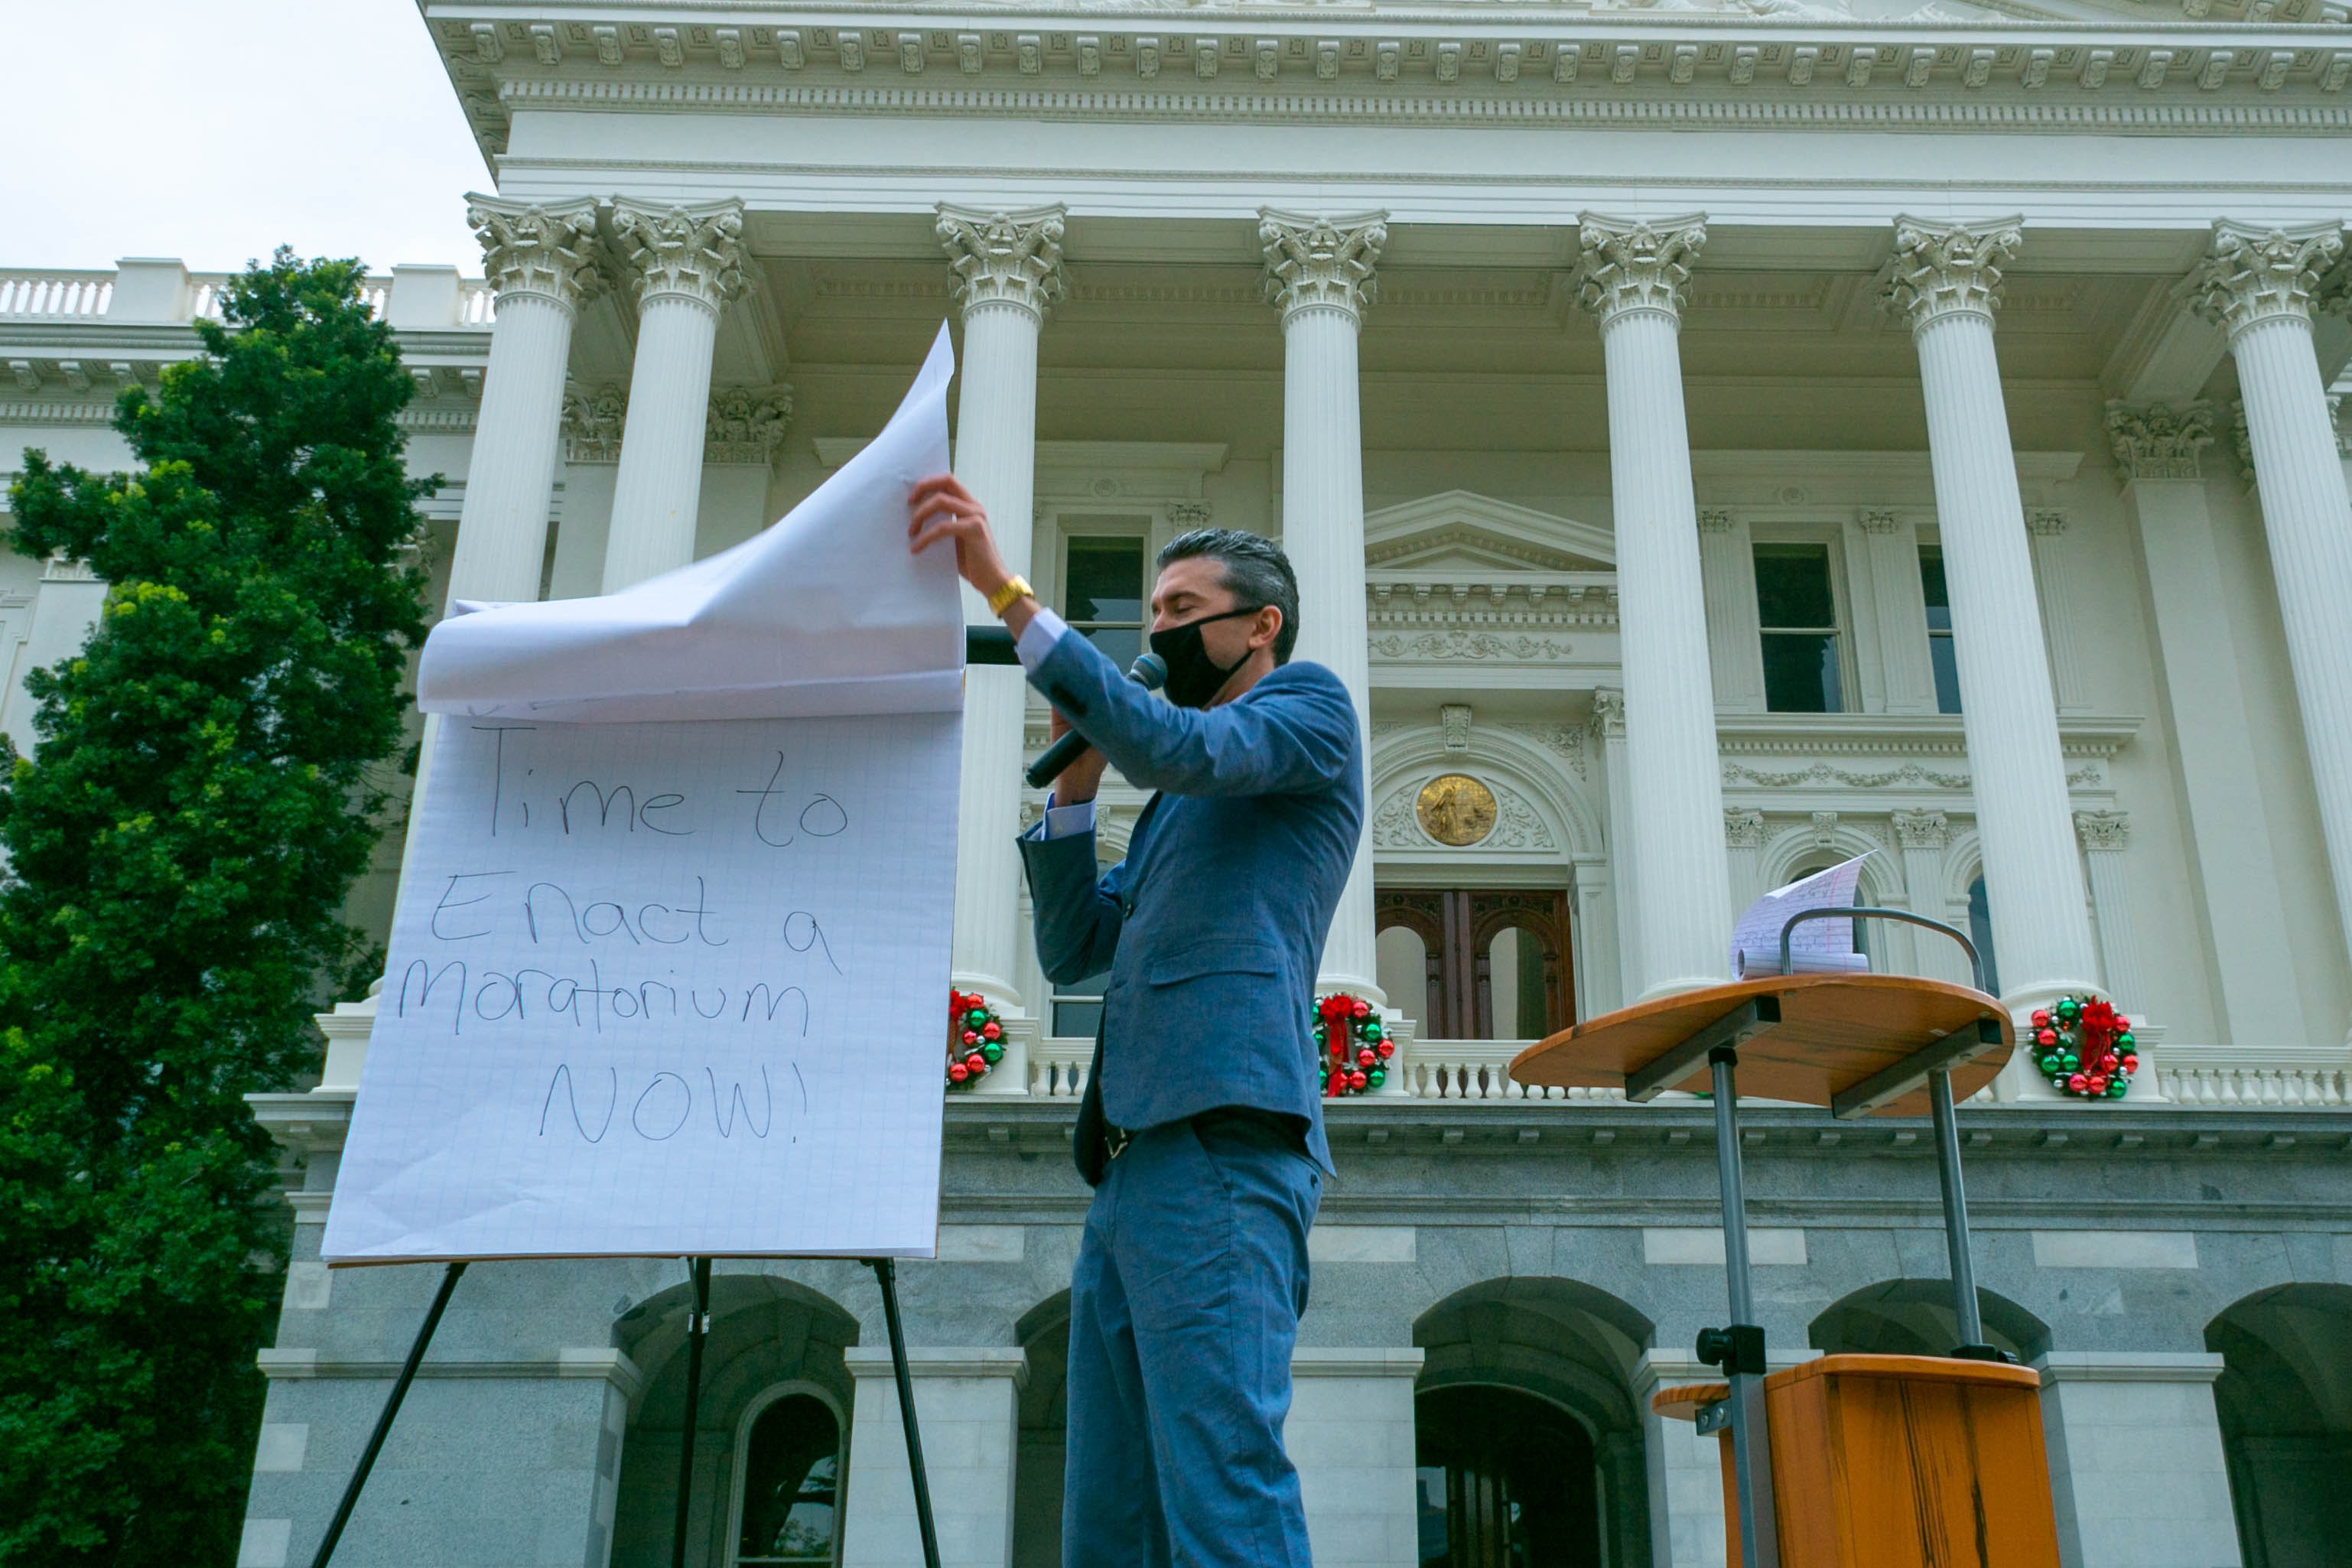 Time to
Enact a
Moratorium
NOW!